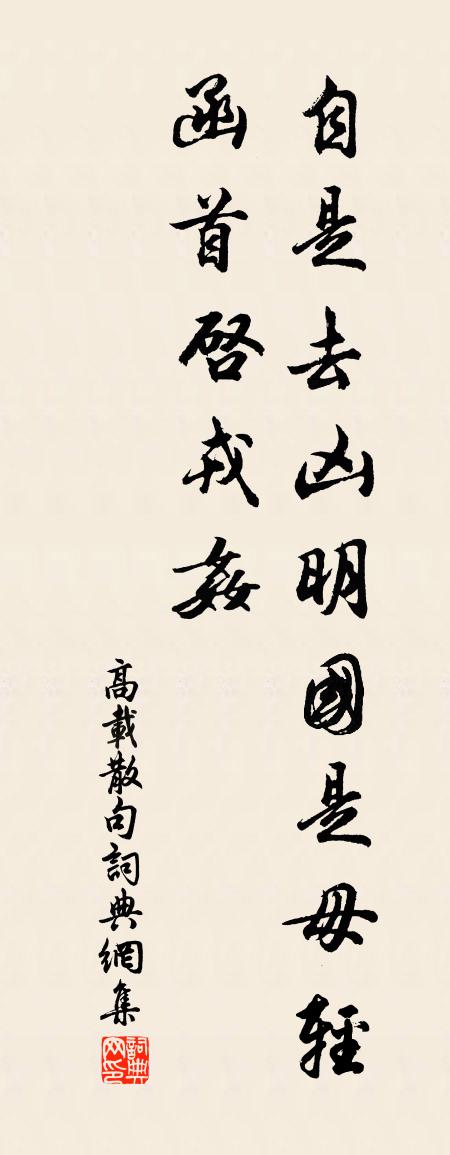 自是去凶明國是毋輕
函首啓戎姦
高載散句詞典網集
詞典网印